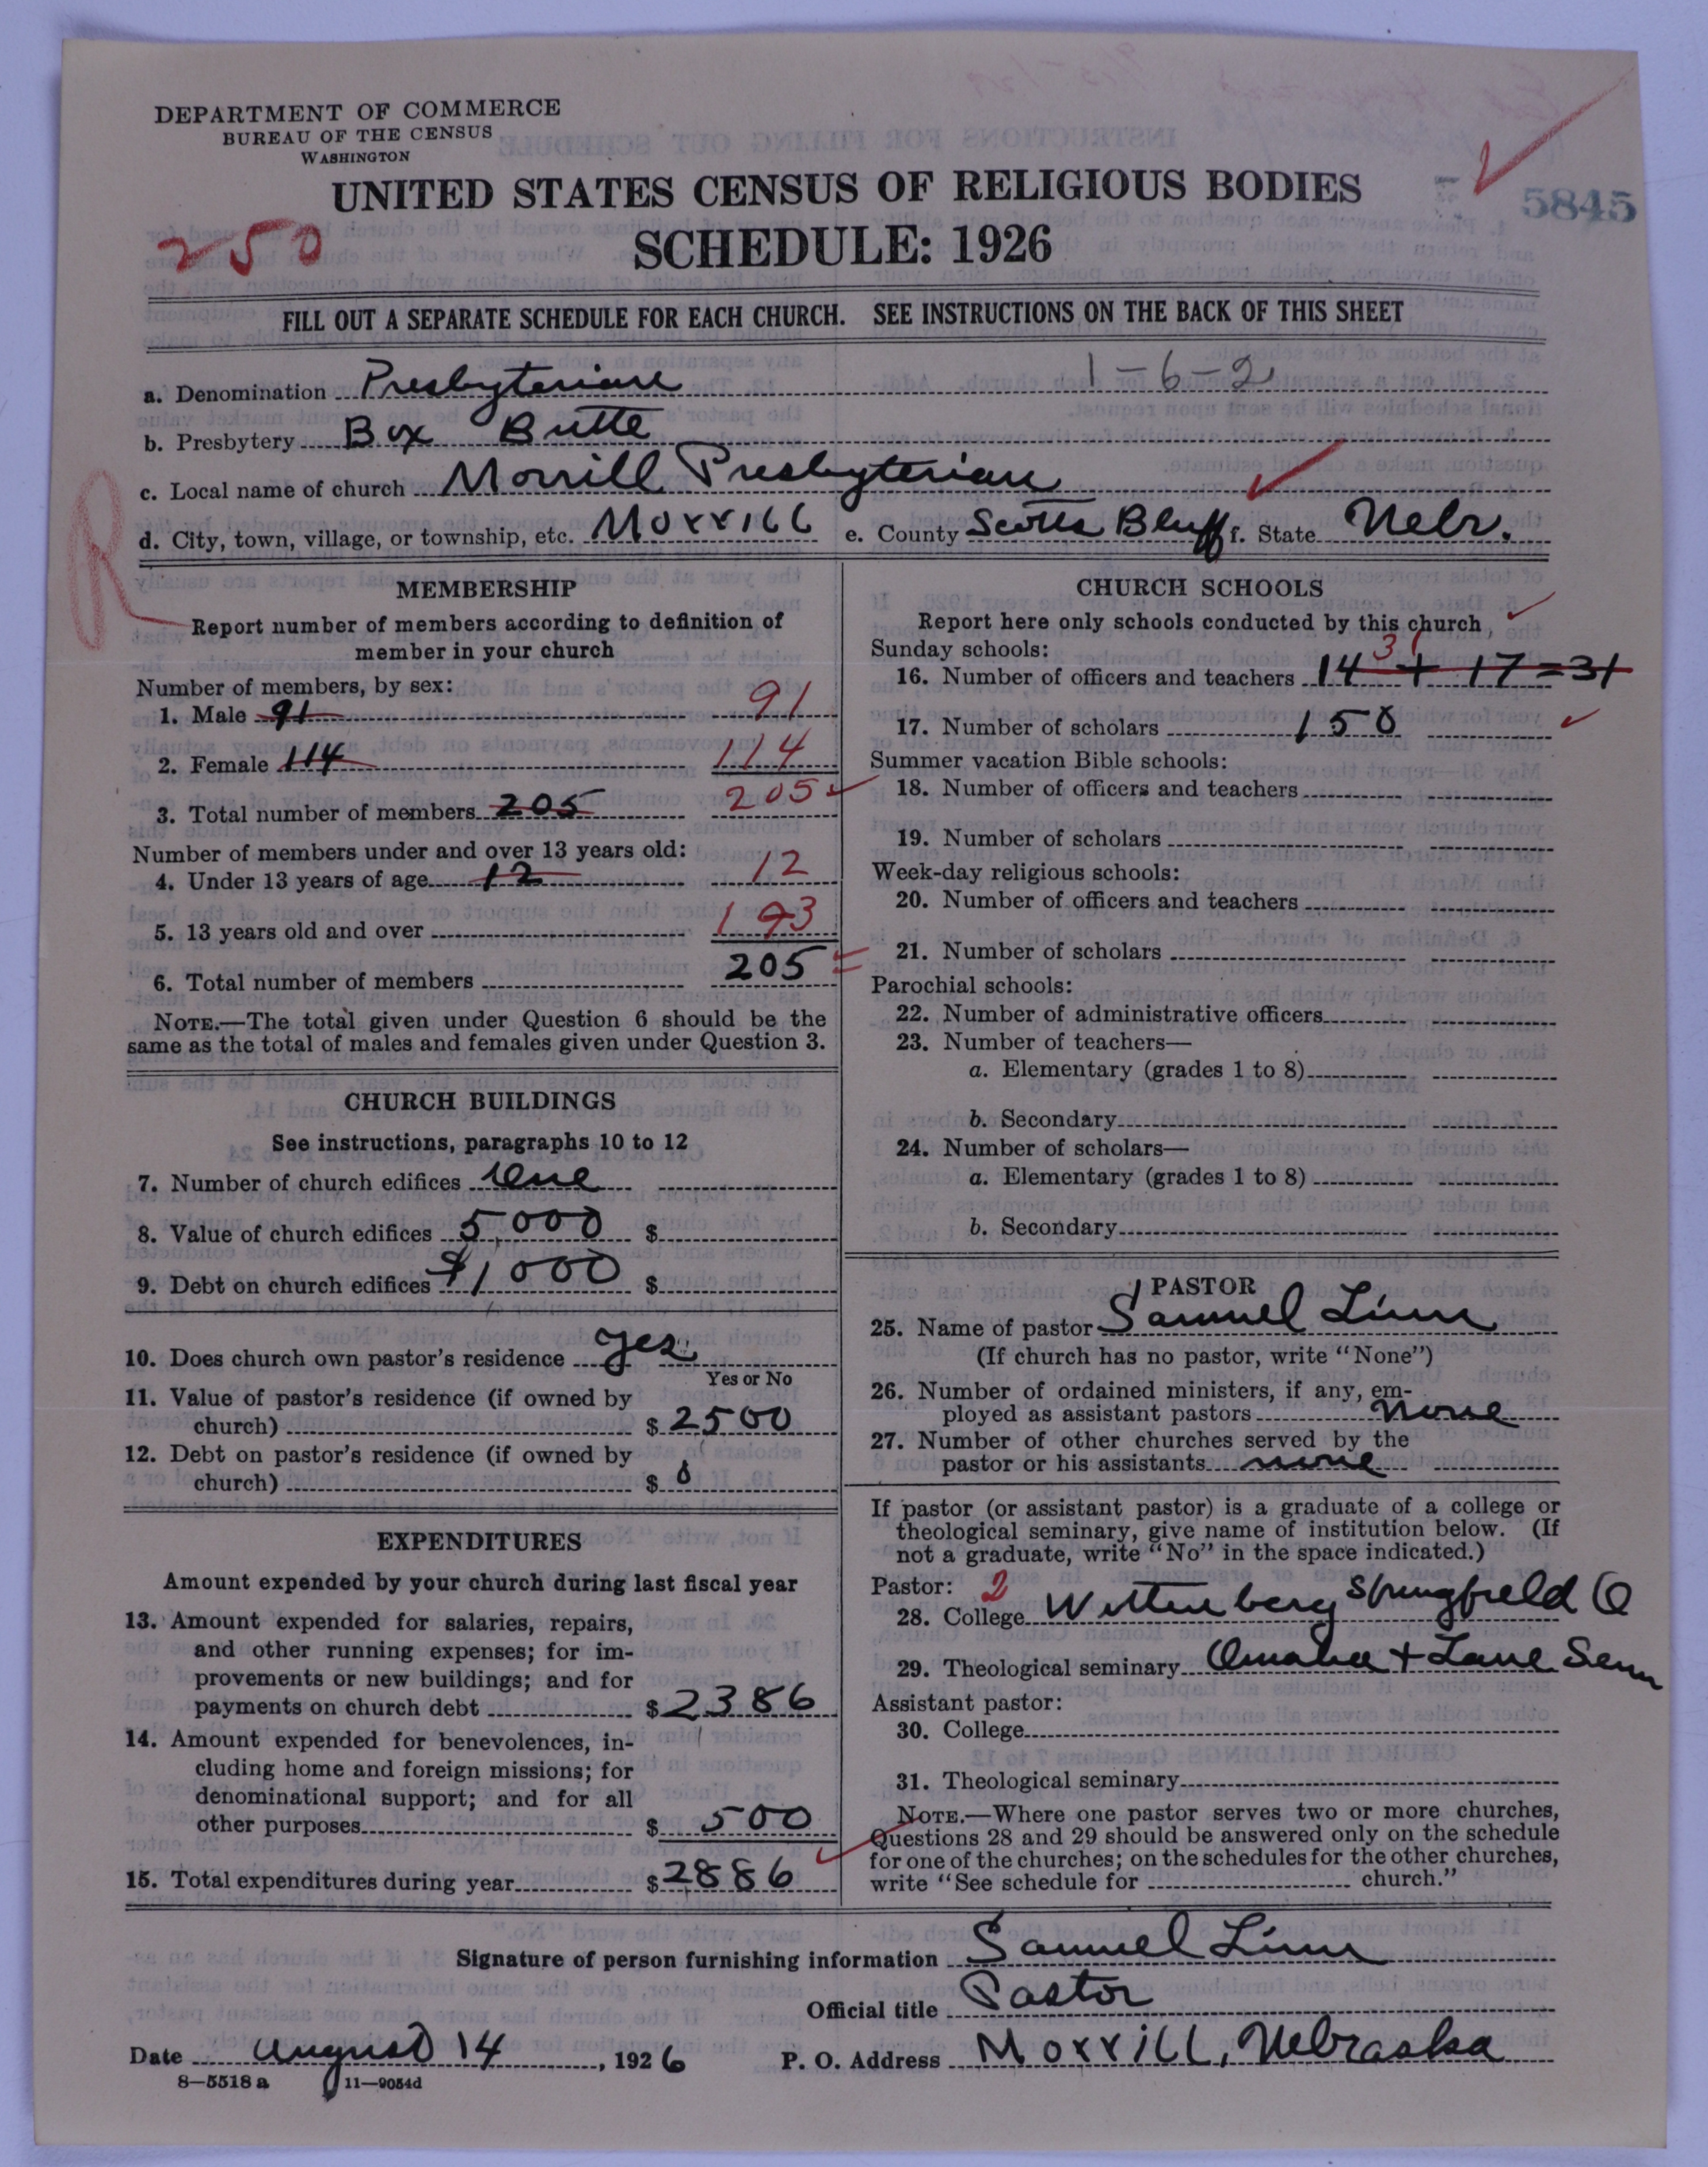 DEPARTMENT OF COMMERCE
BUREAU OF THE CENSUS
WASHINGTON
UNITED STATES CENSUS OF RELIGIOUS BODIES
5845
250
SCHEDULE: 1926
FILL OUT A SEPARATE SCHEDULE FOR EACH CHURCH. SEE INSTRUCTIONS ON THE BACK OF THIS SHEET
1-6-2
a. Denomination Presbyterian
b. Presbytery Box Butte
c. Local name of church Morrill Presbyterian
d. City, town, village, or township, etc. Morrill e. County Scotts Bluff f. State Nebr.
R
MEMBERSHIP
Report number of members according to definition of
member in your church
Number of members, by sex:
1. Male 91 91
2. Female 114 114
3. Total number of members 205 205
Number of members under and over 13 years old:
4. Under 13 years of age 12 12
5. 13 years old and over 193
6. Total number of members 205
NOTE.—The total given under Question 6 should be the
same as the total of males and females given under Question 3.
CHURCH BUILDINGS
See instructions, paragraphs 10 to 12
7. Number of church edifices One
8. Value of church edifices 5,000 $
9. Debt on church edifices $1,000 $
10. Does church own pastor's residence yes
Yes or No
11. Value of pastor's residence (if owned by
church) $ 2500
12. Debt on pastor's residence (if owned by
church) $ 0
EXPENDITURES
Amount expended by your church during last fiscal year
13. Amount expended for salaries, repairs,
and other running expenses; for im-
provements or new buildings; and for
payments on church debt $ 2,386
14. Amount expended for benevolences, in-
cluding home and foreign missions; for
denominational support; and for all
other purposes $ 500
15. Total expenditures during year $ 2886
CHURCH SCHOOLS
Report here only schools conducted by this church
Sunday schools:
31
16. Number of officers and teachers 14 + 17 = 31
17. Number of scholars 150
Summer vacation Bible schools:
18. Number of officers and teachers
19. Number of scholars
Week-day religious schools:
20. Number of officers and teachers
21. Number of scholars
Parochial schools:
22. Number of administrative officers
23. Number of teachers—
a. Elementary (grades 1 to 8)
b. Secondary
24. Number of scholars—
a. Elementary (grades 1 to 8)
b. Secondary
PASTOR
25. Name of pastor Samuel Linn
(If church has no pastor, write "None")
26. Number of ordained ministers, if any, em-
ployed as assistant pastors none
27. Number of other churches served by the
pastor or his assistants none
If pastor (or assistant pastor) is a graduate of a college or
theological seminary, give name of institution below. (If
not a graduate, write "No" in the space indicated.)
Pastor: 2
28. College Wittenberg Springfield O
29. Theological seminary Omaha + Lane Sem
Assistant pastor:
30. College
31. Theological seminary
NOTE.—Where one pastor serves two or more churches,
Questions 28 and 29 should be answered only on the schedule
for one of the churches; on the schedules for the other churches,
write "See schedule for church."
Signature of person furnishing information Samuel Linn
Official title Pastor
Date August 14, 1926 P. O. Address Morrill, Nebraska
8—5518 a 11—9054d